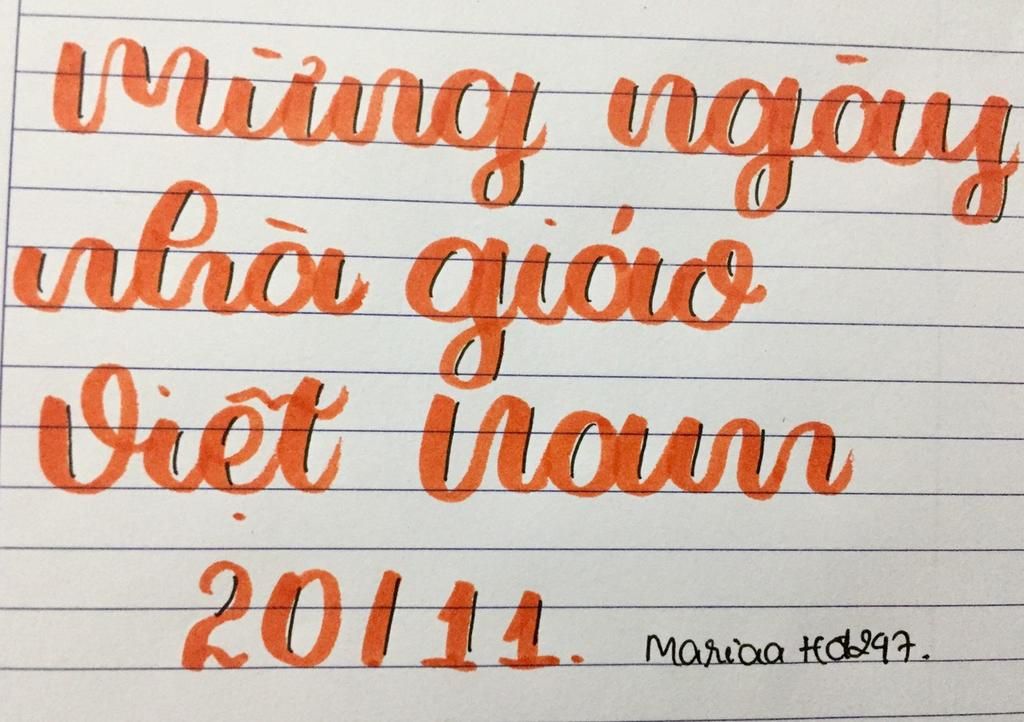 Mừng ngày
nhà giáo
Việt Nam
20/11.
Mariaa Hd297.